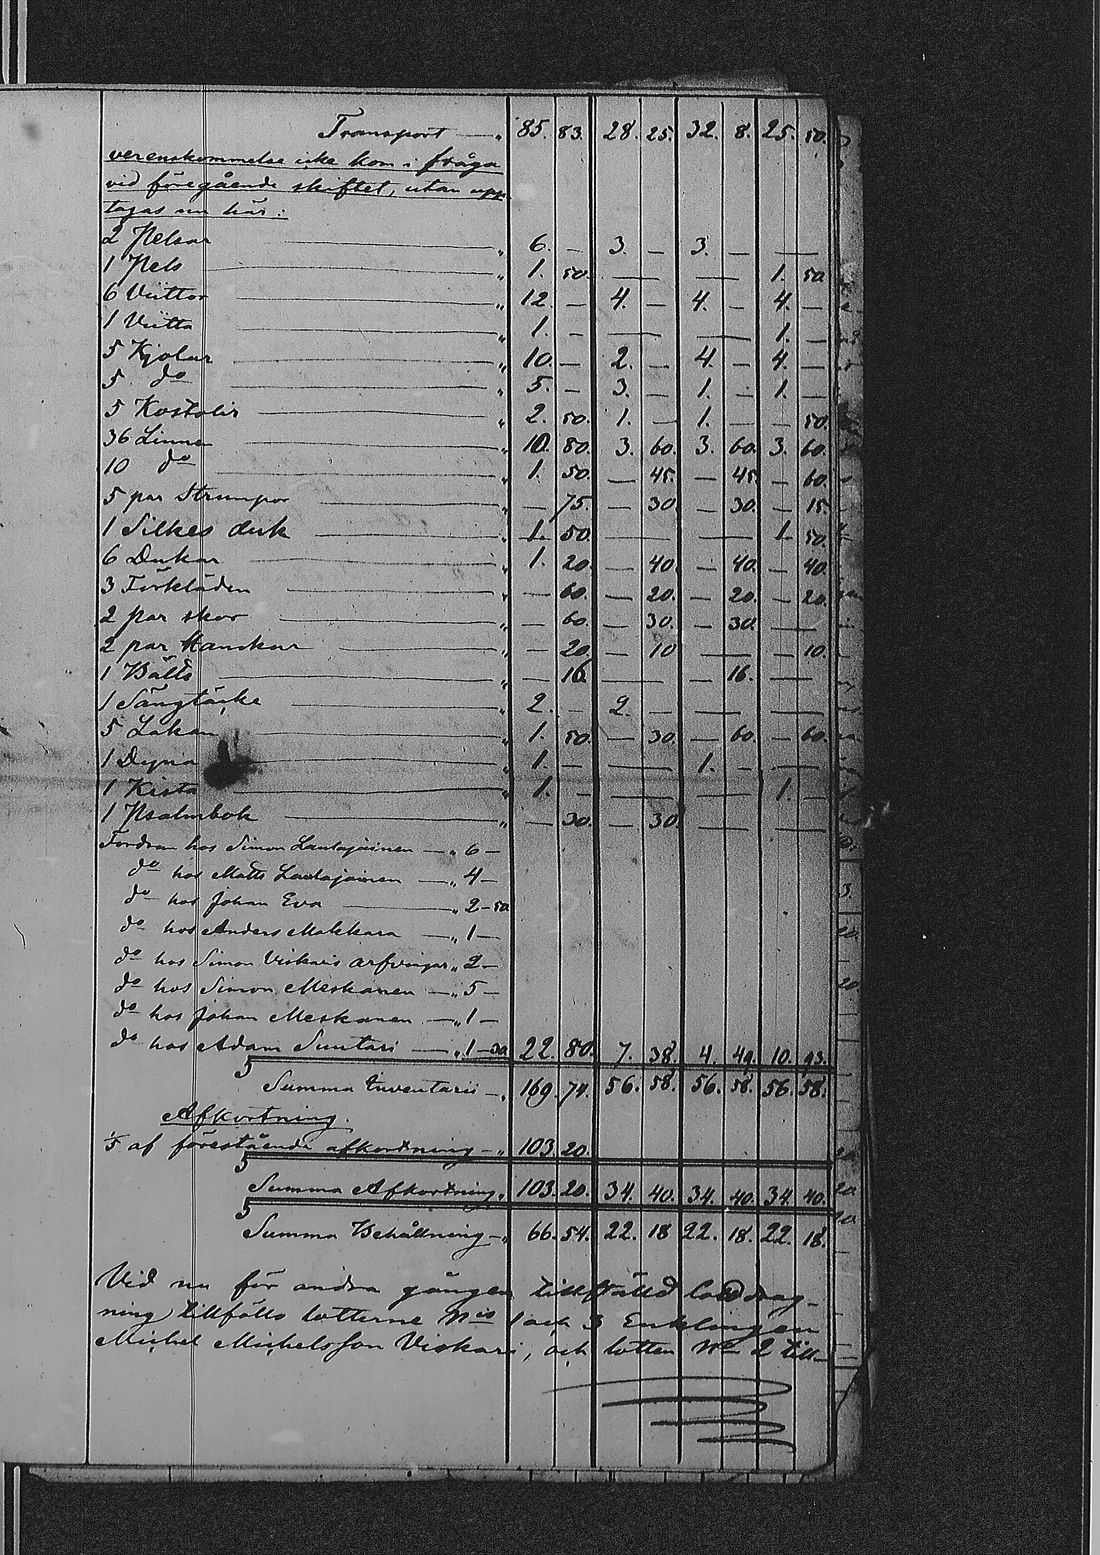 Transport — „ 85. 83. 28. 25. 32. 8. 25. 50.
verenskommelse icke kom i fråga
vid föregående skiftet, utan upp-
tagas nu här:
2 Pelsar — „ 6. — 3. — 3. — —
1 Pels — „ 1. 50. — — 1. 50
6 Vüttor — „ 12. — 4. — 4. — 4. —
1 Vütta — „ 1. — — — 1. —
5 Kjolar — „ 10. — 2. — 4. — 4. —
5 do — „ 5. — 3. — 1. — 1. —
5 Kostolir — „ 2. 50. 1. — 1. — 50.
36 Linnen — „ 10. 80. 3. 60. 3. 60. 3. 60.
10 do — „ 1. 50. — 45. — 45. — 60.
5 par Strumpor — „ — 75. — 30. — 30. — 15.
1 Silkes duk — „ 1. 50. — — 1. 50.
6 Dukar — „ 1. 20. — 40. — 40. — 40.
3 Förkläden — „ — 60. — 20. — 20. — 20.
2 par skor — „ — 60. — 30. — 30. —
2 par Hanskar — „ — 20. — 10 — — 10.
1 Bälte — „ — 16. — — 16. —
1 Sängtäcke — „ 2. — 2. — — —
5 Lakan — „ 1. 50. — 30. — 60. — 60.
1 Dyna — „ 1. — — 1. — —
1 Kista — „ 1. — — — 1. —
1 Psalmbok — „ — 30. — 30. — —
Fordran hos Simon Lautajainen — „ 6 —
do hos Matts Lautajainen — „ 4 —
do hos Johan Eva — „ 2 – 50
do hos Anders Mokkara — „ 1 —
do hos Simon Viskaris arfvingar „ 2 —
do hos Simon Meskanen — „ 5 —
do hos Johan Meskanen — „ 1 —
do hos Adam Suutari — „ 1 – 30 22. 80. 7. 38. 4. 49. 10. 93.
Summa Inventarii — „ 169. 74. 56. 58. 56. 58. 56. 58.
Afkortning.
1/5 af förestående afkortning — „ 103. 20.
Summa Afkortning „ 103. 20. 34. 40. 34. 40. 34. 40.
Summa Behållning — „ 66. 54. 22. 18 22. 18. 22. 18.
Vid nu för andra gången tillställd lottdrag-
ning tillföllo lotterne Nis 1 och 3 Enklingen
Michel Michelsson Viskari, och lotten No 2 till-